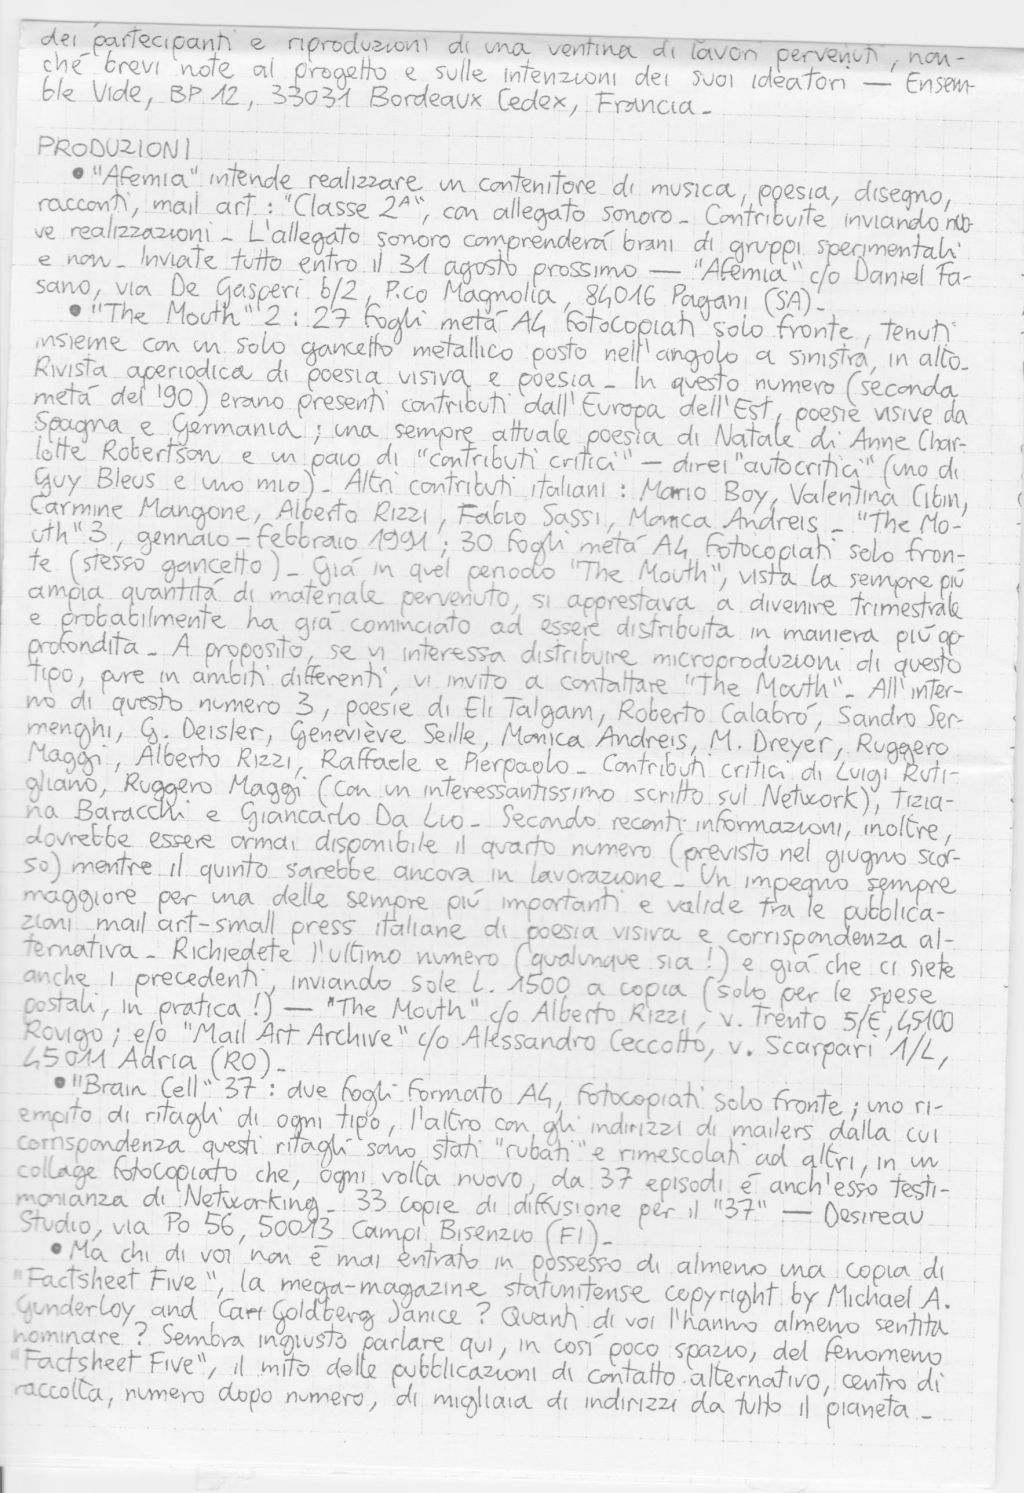 dei partecipanti e riproduzioni di una ventina di lavori pervenuti, non-
ché brevi note al progetto e sulle intenzioni dei suoi ideatori — Ensem-
ble Vide, BP 12, 33031 Bordeaux Cedex, Francia.
PRODUZIONI
• "Afemia" intende realizzare un contenitore di musica, poesia, disegno,
racconti, mail art: "Classe 2ᴬ", con allegato sonoro - Contribuite inviando nuo-
ve realizzazioni - L'allegato sonoro comprenderá brani di gruppi sperimentali
e non - Inviate tutto entro il 31 agosto prossimo — "Afemia" c/o Daniel Fa-
sano, via De Gasperi 6/2, P.co Magnolia, 84016 Pagani (SA) -
• "The Mouth" 2: 27 fogli metá A4 fotocopiati solo fronte, tenuti
insieme con un solo gancetto metallico posto nell'angolo a sinistra, in alto -
Rivista aperiodica di poesia visiva e poesia - In questo numero (seconda
metá del '90) erano presenti contributi dall'Europa dell'Est, poesie visive da
Spagna e Germania; una sempre attuale poesia di Natale di Anne Char-
lotte Robertson e un paio di "contributi critici" — direi "autocritici" (uno di
Guy Bleus e uno mio) - Altri contributi italiani: Mario Boy, Valentina Cibin,
Carmine Mangone, Alberto Rizzi, Fabio Sassi, Monica Andreis - "The Mo-
uth" 3, gennaio-febbraio 1991; 30 fogli metá A4 fotocopiati solo fron-
te (stesso gancetto) - Giá in quel periodo "The Mouth", vista la sempre piú
ampia quantitá di materiale pervenuto, si apprestava a divenire trimestrale
e probabilmente ha giá cominciato ad essere distribuita in maniera piú ap-
profondita - A proposito, se vi interessa distribuire microproduzioni di questo
tipo, pure in ambiti differenti, vi invito a contattare "The Mouth" - All'inter-
no di questo numero 3, poesie di Eli Talgam, Roberto Calabró, Sandro Ser-
menghi, G. Deisler, Geneviève Seille, Monica Andreis, M. Dreyer, Ruggero
Maggi, Alberto Rizzi, Raffaele e Pierpaolo - Contributi critici di Luigi Ruti-
gliano, Ruggero Maggi (con un interessantissimo scritto sul Network), Tizia-
na Baracchi e Giancarlo Da Lio - Secondo recenti informazioni, inoltre,
dovrebbe essere ormai disponibile il quarto numero (previsto nel giugno scor-
so) mentre il quinto sarebbe ancora in lavorazione - Un impegno sempre
maggiore per una delle sempre piú importanti e valide tra le pubblica-
zioni mail art-small press italiane di poesia visiva e corrispondenza al-
ternativa - Richiedete l'ultimo numero (qualunque sia!) e giá che ci siete
anche i precedenti, inviando sole L. 1500 a copia (solo per le spese
postali, in pratica!) — "The Mouth" c/o Alberto Rizzi, v. Trento 5/E, 45100
Rovigo; e/o "Mail Art Archive" c/o Alessandro Ceccotto, v. Scarpari 1/L,
45011 Adria (RO) -
• "Brain Cell" 37: due fogli formato A4, fotocopiati solo fronte; uno ri-
empito di ritagli di ogni tipo, l'altro con gli indirizzi di mailers dalla cui
corrispondenza questi ritagli sono stati "rubati" e rimescolati ad altri, in un
collage fotocopiato che, ogni volta nuovo, da 37 episodi é anch'esso testi-
monianza di Networking - 33 copie di diffusione per il "37" — Desireau
Studio, via Po 56, 50013 Campi Bisenzio (FI) -
• Ma chi di voi non é mai entrato in possesso di almeno una copia di
"Factsheet Five", la mega-magazine statunitense copyright by Michael A.
Gunderloy and Cari Goldberg Janice? Quanti di voi l'hanno almeno sentita
nominare? Sembra ingiusto parlare qui, in cosí poco spazio, del fenomeno
"Factsheet Five", il mito delle pubblicazioni di contatto alternativo, centro di
raccolta, numero dopo numero, di migliaia di indirizzi da tutto il pianeta -